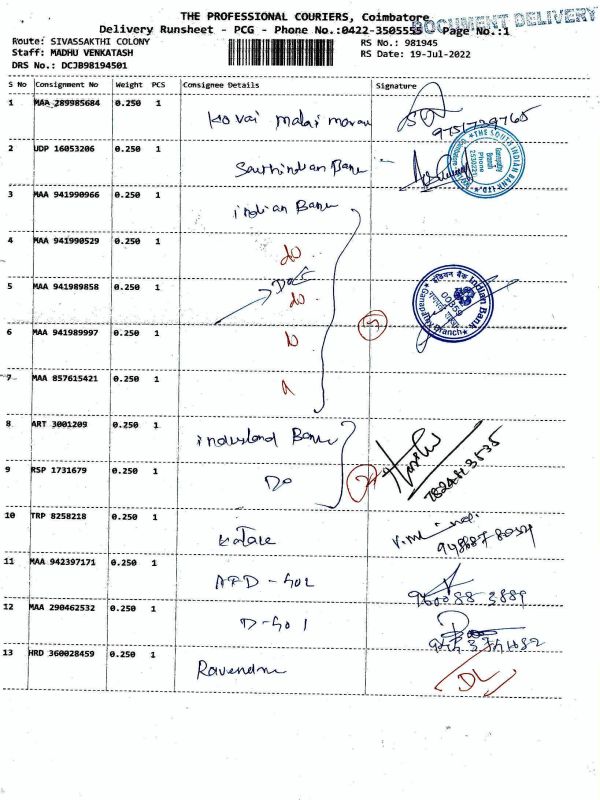 THE PROFESSIONAL COURIERS, Coimbatore
DOCUMENT DELIVERY
Delivery Runsheet - PCG - Phone No.:0422-3505555 Page No.:1
Route: SIVASSAKTHI COLONY
RS No.: 981945
Staff: MADHU VENKATASH
RS Date: 19-Jul-2022
DRS No.: DCJB98194501
S No Consignment No Weight PCS Consignee Details Signature
1 MAA 289985684 0.250 1 Kovai malai maran
9751729765
2 UDP 16053206 0.250 1 South indian Bank
THE SOUTH INDIAN BANK LTD.
Ganapathy Branch Phone
3 MAA 941990966 0.250 1 indian Bank
4 MAA 941990529 0.250 1 do
5 MAA 941989858 0.250 1 do
Indian Bank
इंडियन बैंक
Ganapathy Branch
6 MAA 941989997 0.250 1
7 MAA 857615421 0.250 1
8 ART 3001209 0.250 1 indusland Bank
9 RSP 1731679 0.250 1 Do
10 TRP 8258218 0.250 1
11 MAA 942397171 0.250 1
12 MAA 290462532 0.250 1 D-501
13 HRD 360028459 0.250 1 Ravendra
DL